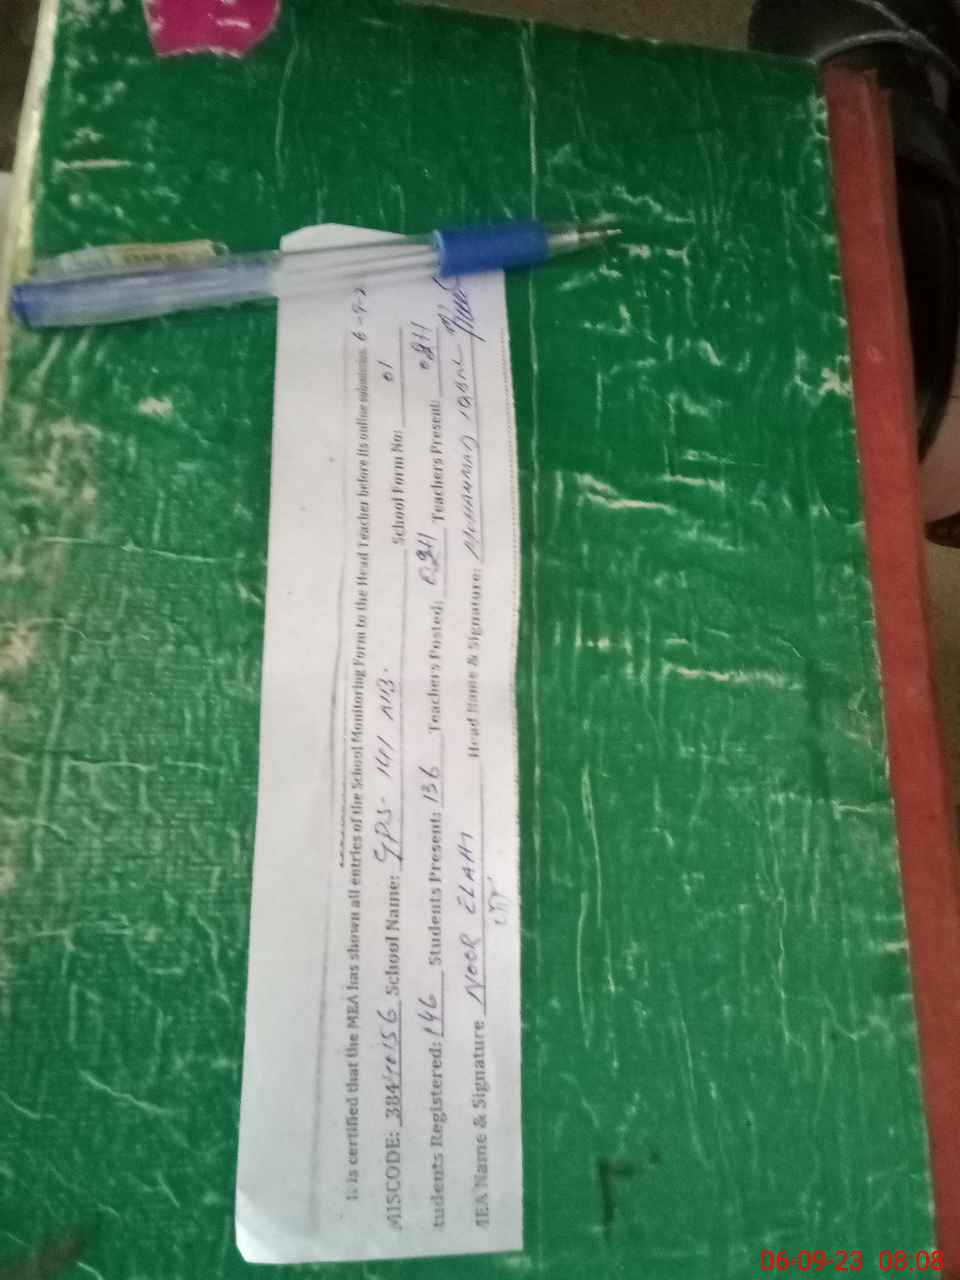 It is certified that the MEA has shown all entries of the School Monitoring Form to the Head Teacher before its online submission. 6-9-2
MISCODE: 38440156 School Name: GPS- 141 NB. School Form No: 01
tudents Registered: 146 Students Present: 136 Teachers Posted: Teachers Present:
MEA Name & Signature NOOR ELAHI Head Name & Signature: MUHAMMAD IQBAL
06-09-23 08.08